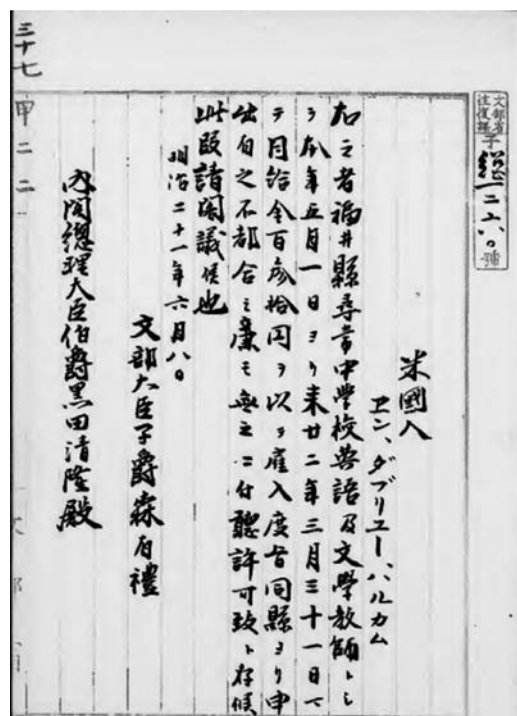 文部省
往復課
子總一二六〇號
米國人
エン、ダブリユー、ハルカム
右之者福井縣尋常中學校英語及文學教師トシ
テ本年五月一日ヨリ来廿二年三月三十一日マ
テ月給金百參拾円ヲ以テ雇入度旨同縣ヨリ申
出右之不都合之廉モ無之ニ付聽許可致ト存候
此段請閣議候也
明治二十一年六月八日
文部大臣子爵森有禮
内閣總理大臣伯爵黒田清隆殿
三十七
甲二二
文部省